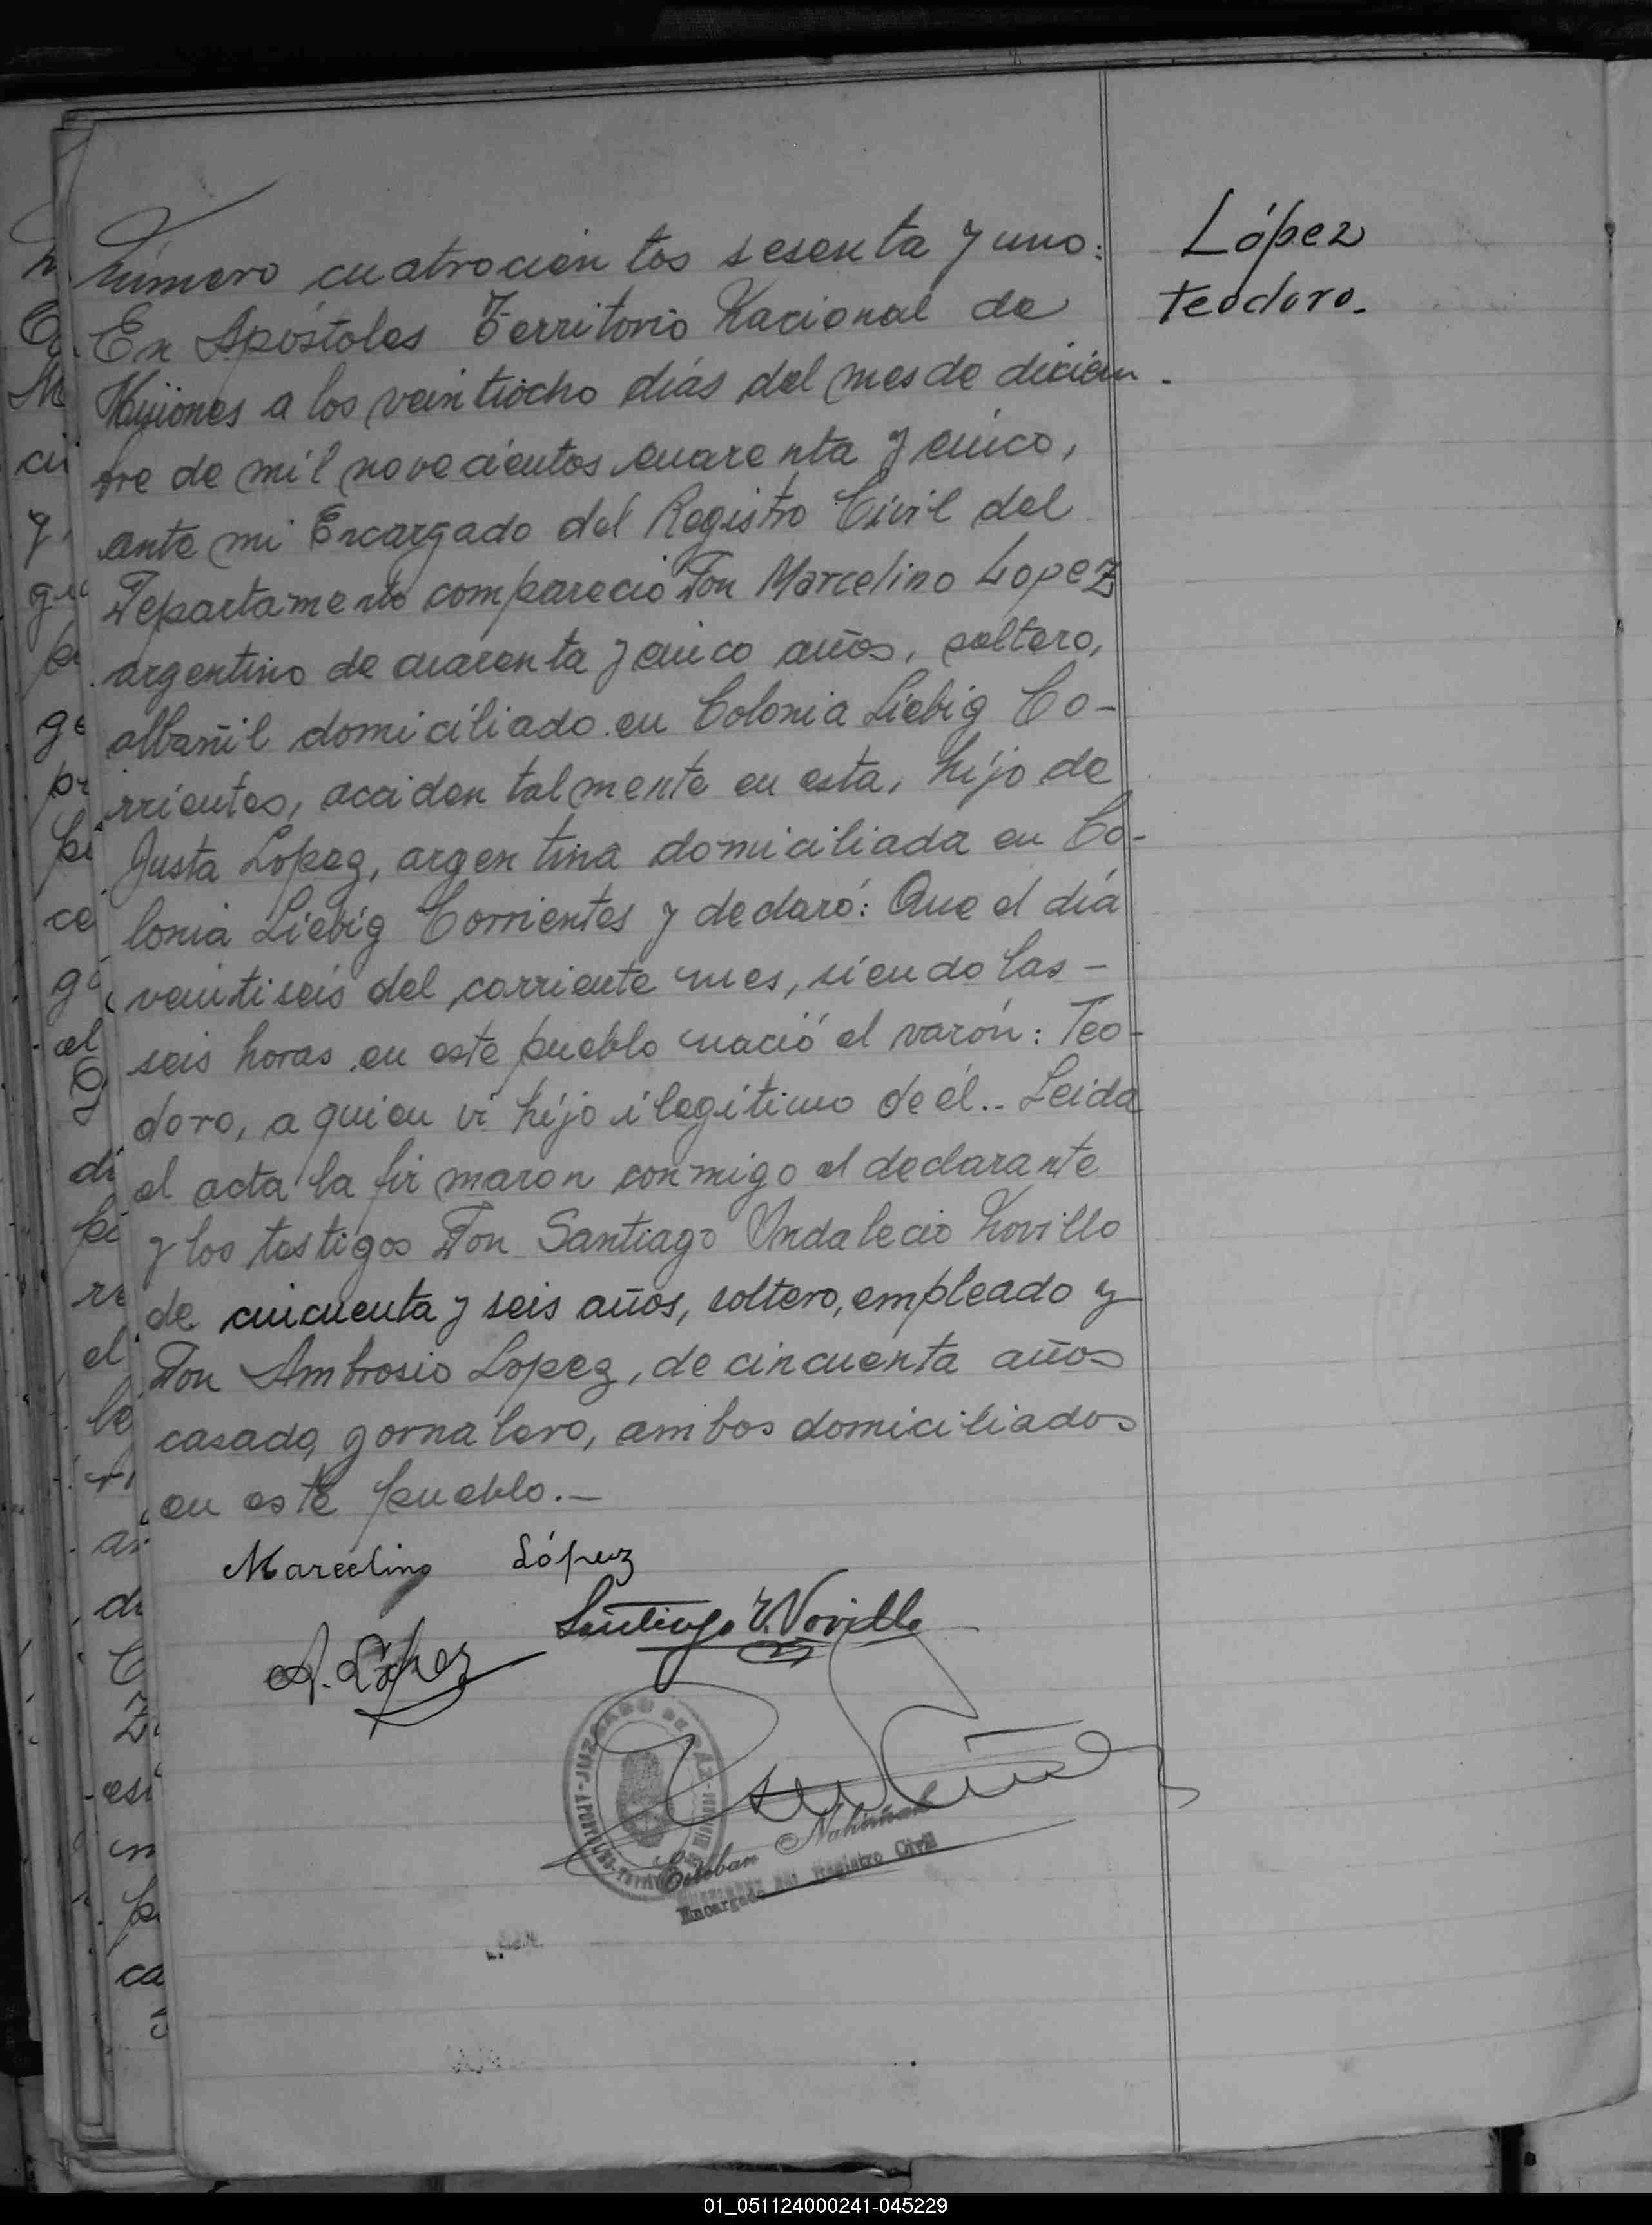 Número cuatrocientos sesenta y uno:
En Apóstoles Territorio Nacional de
Misiones a los veintiocho días del mes de diciem-
bre de mil novecientos cuarenta y cinco,
ante mi Encargado del Registro Civil del
Departamento compareció Don Marcelino Lopez
argentino de cuarenta y cinco años, soltero,
albañil domiciliado en Colonia Liebig Co-
rrientes, accidentalmente en esta, hijo de
Justa Lopez, argentina domiciliada en Co-
lonia Liebig Corrientes y declaró: Que el día
veintiseis del corriente mes, siendo las -
seis horas en este pueblo nació el varón: Teo-
doro, a quien vi hijo ilegitimo de él.. Leida
el acta la firmaron conmigo el declarante
y los testigos Don Santiago Indalecio Novillo
de cincuenta y seis años, soltero, empleado y
Don Ambrosio Lopez, de cincuenta años
casado, gornalero, ambos domiciliados
en este pueblo.-
López
Teodoro.-
Marcelino López
Santiago I. Novillo
A. López
JUZGADO DE PAZ
APOSTOLES
Esteban
Encargado del Registro Civil
01_051124000241-045229